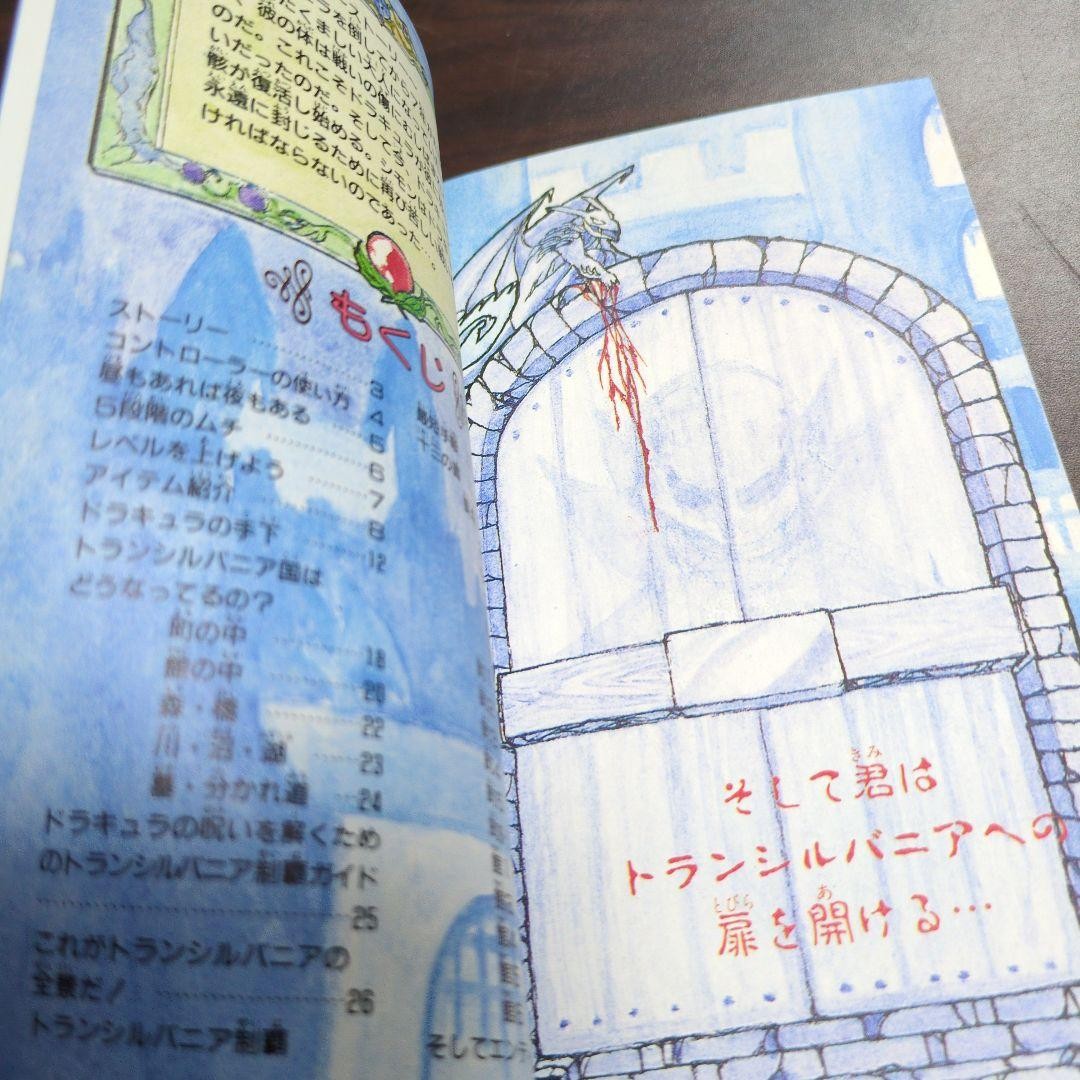 ストーリー
彼の体は戦いの傷に
のだ。これこそドラキュラが
いだったのだ。そして今、ド
骸が復活し始める。シモンは
永遠に封じるために再び苦し
ければならないのであった…
もくじ
ストーリー 3
コントローラーの使い方 4
昼もあれば夜もある 5
5段階のムチ 6
レベルを上げよう 7
アイテム紹介 8
ドラキュラの手下 12
トランシルバニア国は
どうなってるの?
町の中 18
館の中 20
森・橋 22
川・沼・湖 23
墓・分かれ道 24
ドラキュラの呪いを解くため
のトランシルバニア制覇ガイド
25
これがトランシルバニアの
全景だ! 26
トランシルバニア制覇
そしてエンデ
そして君は
きみ
トランシルバニアへの
扉を開ける…
とびら あ